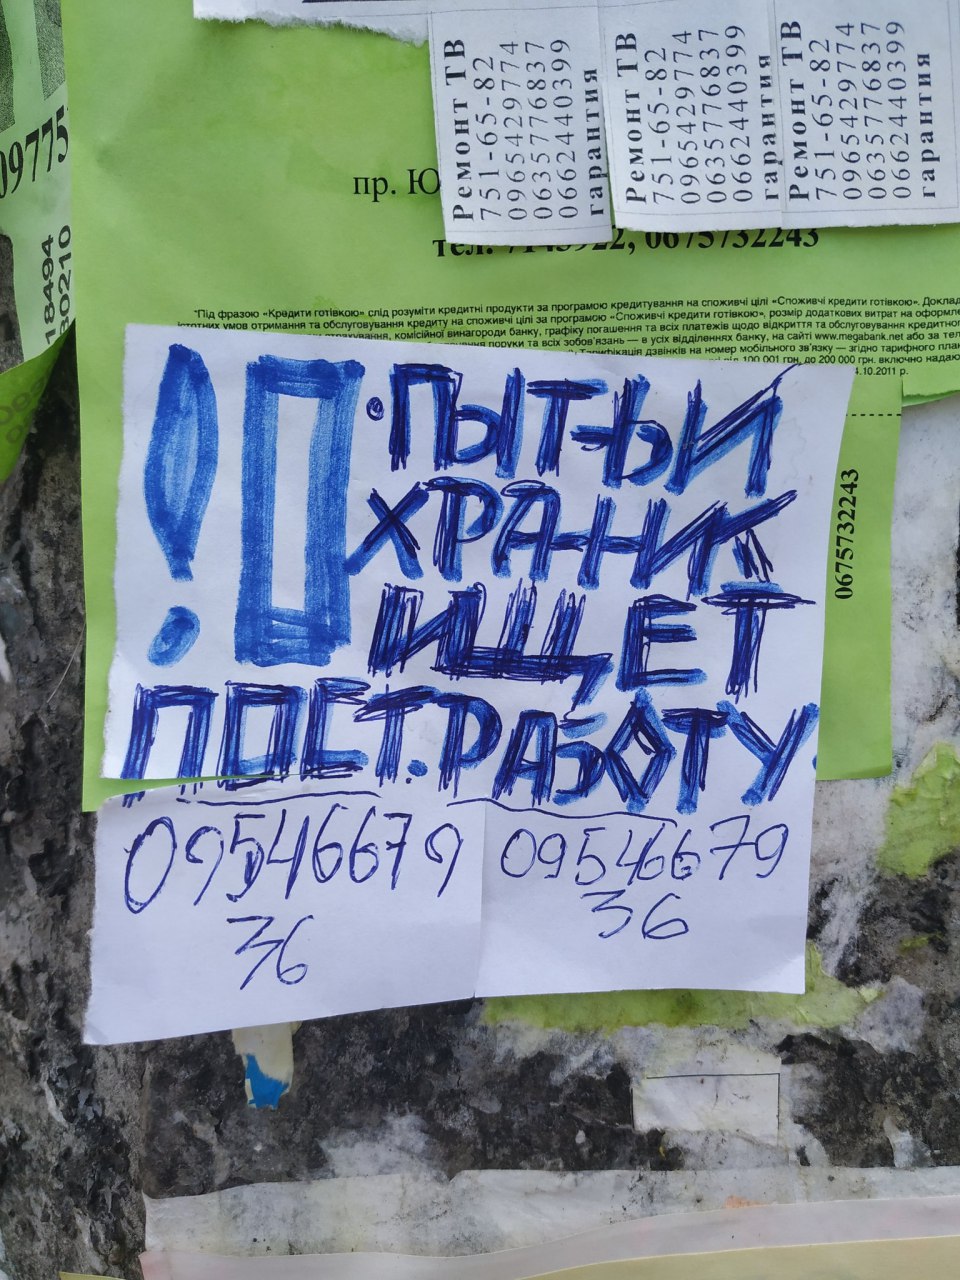 09775
18494
30210
Ремонт ТВ
751-65-82
0965429774
0635776837
0662440399
гарантия
Ремонт ТВ
751-65-82
0965429774
0635776837
0662440399
гарантия
Ремонт ТВ
751-65-82
0965429774
0635776837
0662440399
гарантия
пр. Ю
тел. 7145922, 0675732243
"Під фразою «Кредити готівкою» слід розуміти кредитні продукти за програмою кредитування на споживчі цілі «Споживчі кредити готівкою». Доклад
істотних умов отримання та обслуговування кредиту на споживчі цілі за програмою «Споживчі кредити готівкою», розмір додаткових витрат на оформле
страхування, комісійної винагороди банку, графіку погашення та всіх платежів щодо відкриття та обслуговування кредитног
поруки та всіх зобов'язань — в усіх відділеннях банку, на сайті www.megabank.net або за тел
Тарифікація дзвінків на номер мобільного зв'язку — згідно тарифного план
від 100 001 грн. до 200 000 грн. включно надают
4.10.2011 р.
0675732243
! О
ПЫТНЫЙ
ХРАНИК
ИЩЕТ
ПОСТ. РАБОТУ
0954667936
0954667936